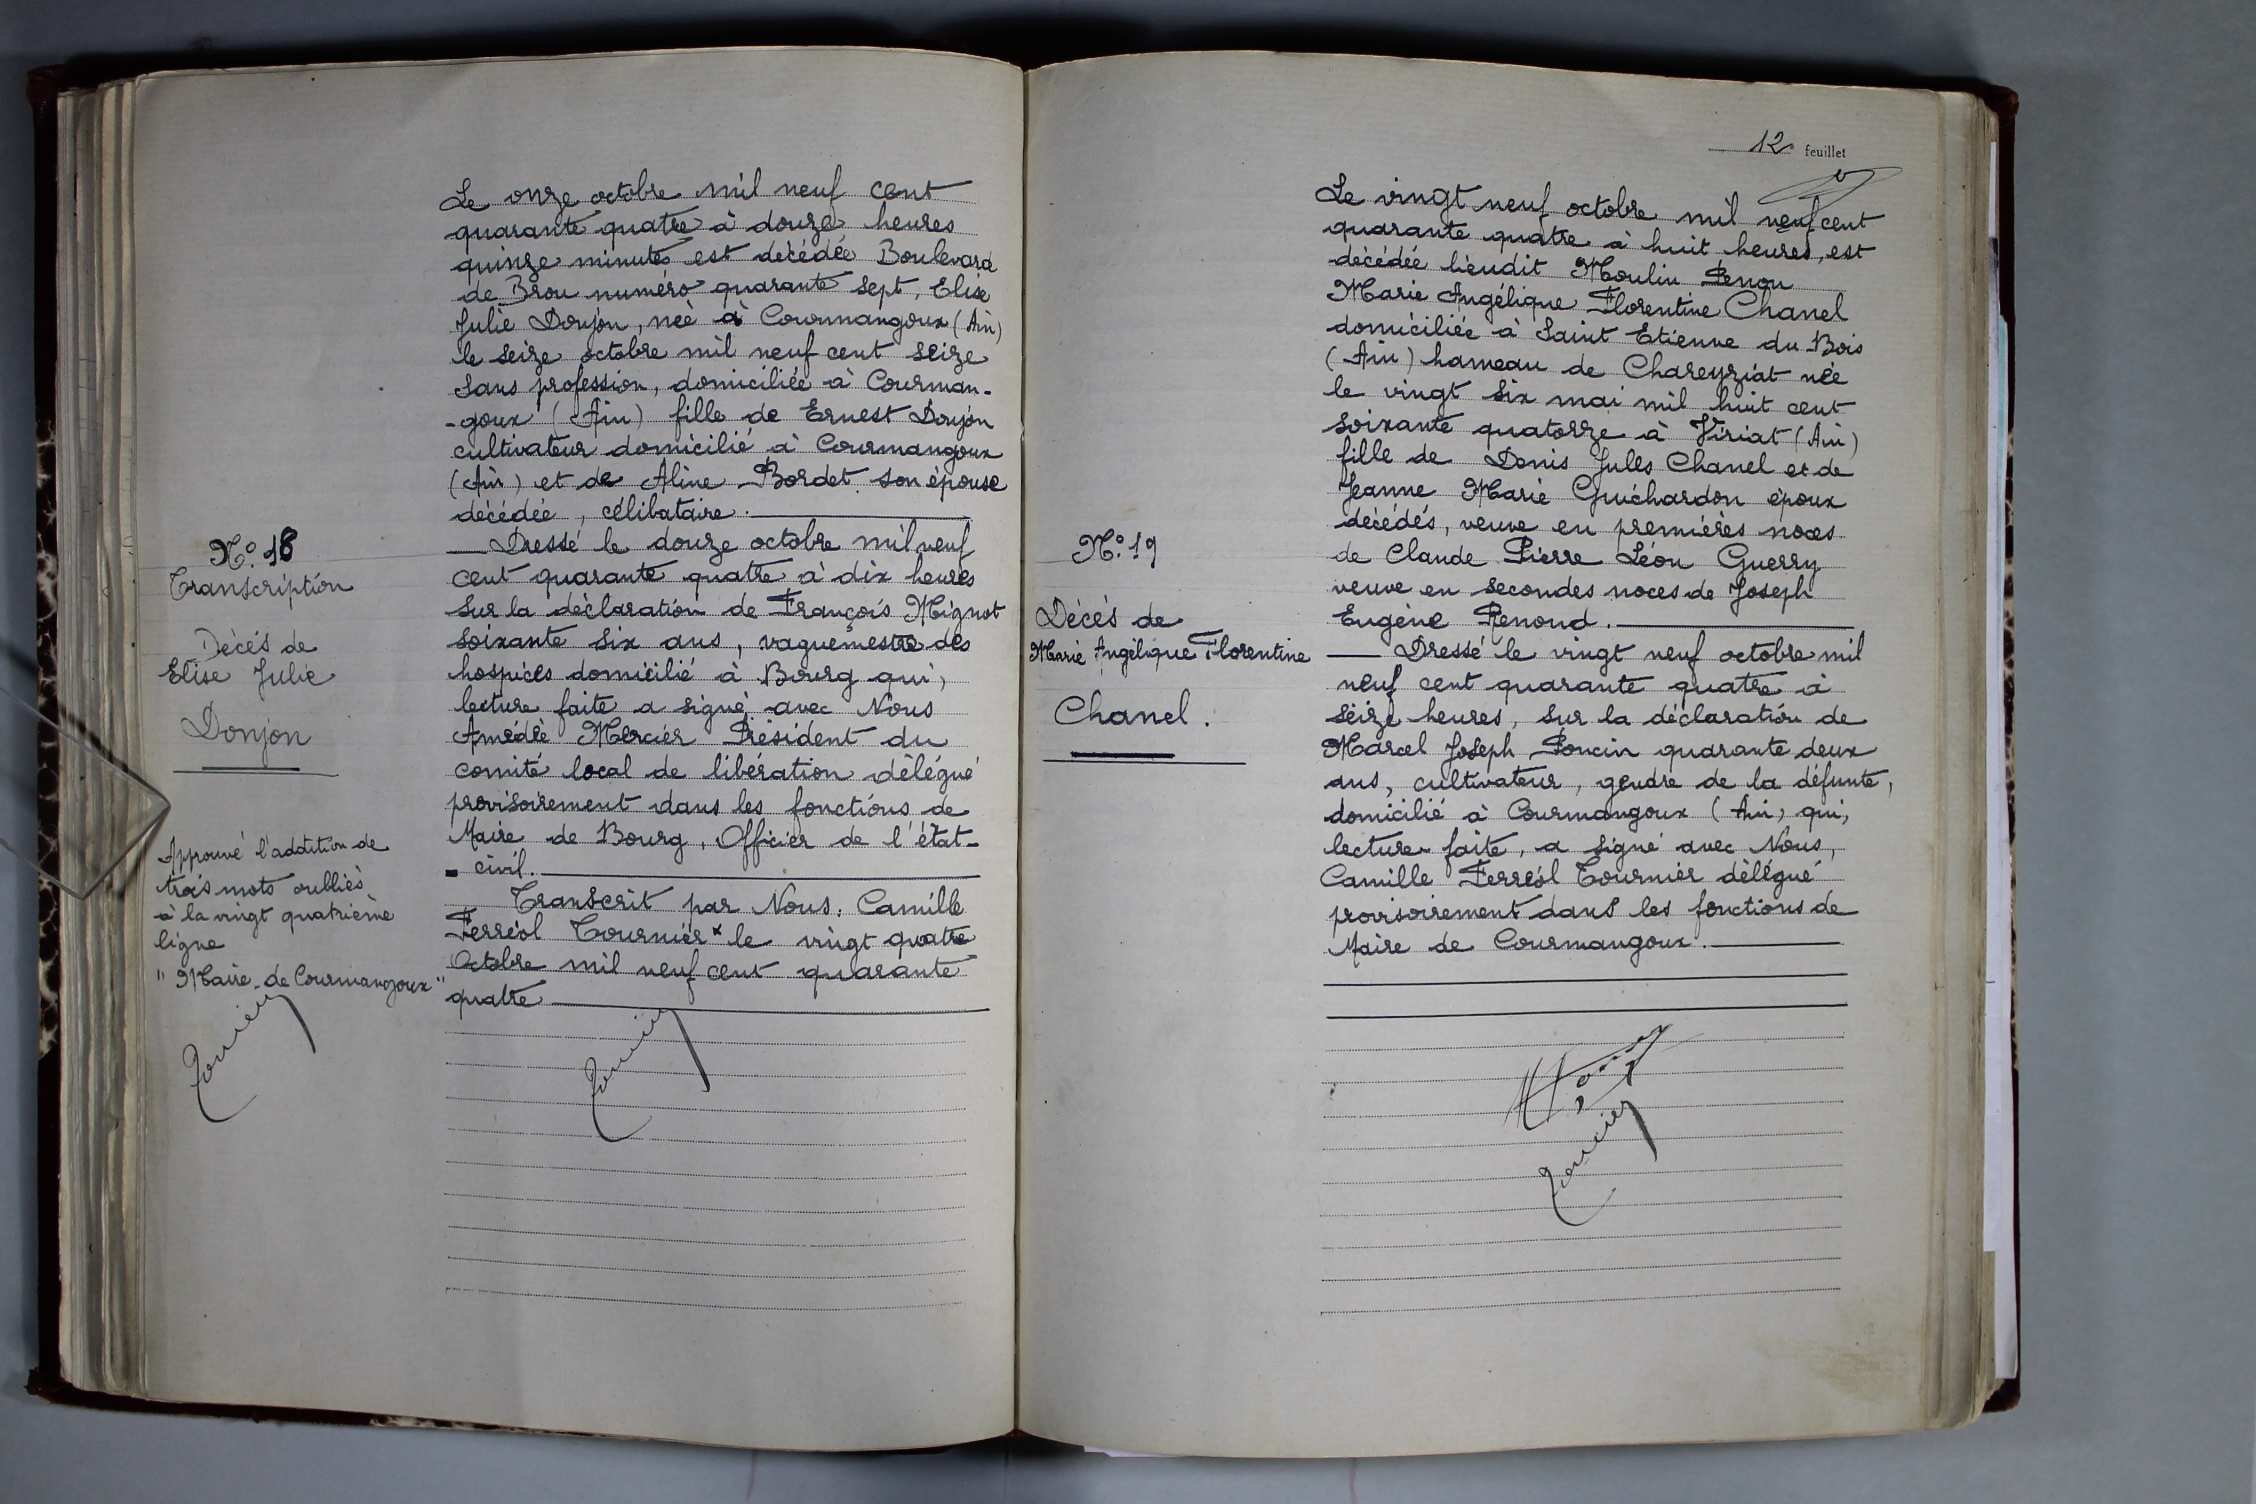 N.º 18
Transcription
Décès de
Elise Julie
Donjon
Approuvé l'addition de
trois mots oubliés
à la vingt quatrième
ligne
"Maire de Courmangoux"
Tournier
Le onze octobre mil neuf cent
quarante quatre à douze heures
quinze minutes est décédée Boulevard
de Brou numéro quarante sept, Elise
Julie Donjon, née à Courmangoux (Ain)
le seize octobre mil neuf cent seize
sans profession, domiciliée à Courman-
-goux (Ain) fille de Ernest Donjon
cultivateur domicilié à Courmangoux
(Ain) et de Aline Bordet son épouse
décédée, célibataire.
Dressé le douze octobre mil neuf
cent quarante quatre à dix heures
sur la déclaration de François Mignot
soixante six ans, vaguemestre des
hospices domicilié à Bourg qui,
lecture faite a signé avec Nous
Amédée Mercier Président du
comité local de libération délégué
provisoirement dans les fonctions de
Maire de Bourg, Officier de l'état-
- civil.
Transcrit par Nous, Camille
Ferréol Tournier x le vingt quatre
Octobre mil neuf cent quarante
quatre
Tournier
12 feuillet
N.º 19
Décès de
Marie Angélique Florentine
Chanel.
Le vingt neuf octobre mil neuf cent
quarante quatre à huit heures, est
décédée lieudit Moulin Penon
Marie Angélique Florentine Chanel
domiciliée à Saint Etienne du Bois
(Ain) hameau de Chareyziat née
le vingt six mai mil huit cent
soixante quatorze à Viriat (Ain)
fille de Denis Jules Chanel et de
Jeanne Marie Guichardon époux
décédés, veuve en premières noces
de Claude Pierre Léon Guerry
veuve en secondes noces de Joseph
Eugène Renoud.
Dressé le vingt neuf octobre mil
neuf cent quarante quatre à
seize heures, sur la déclaration de
Marcel Joseph Poncin quarante deux
ans, cultivateur, gendre de la défunte,
domicilié à Courmangoux (Ain) qui,
lecture faite, a signé avec Nous,
Camille Ferréol Tournier délégué
provisoirement dans les fonctions de
Maire de Courmangoux.
Tournier